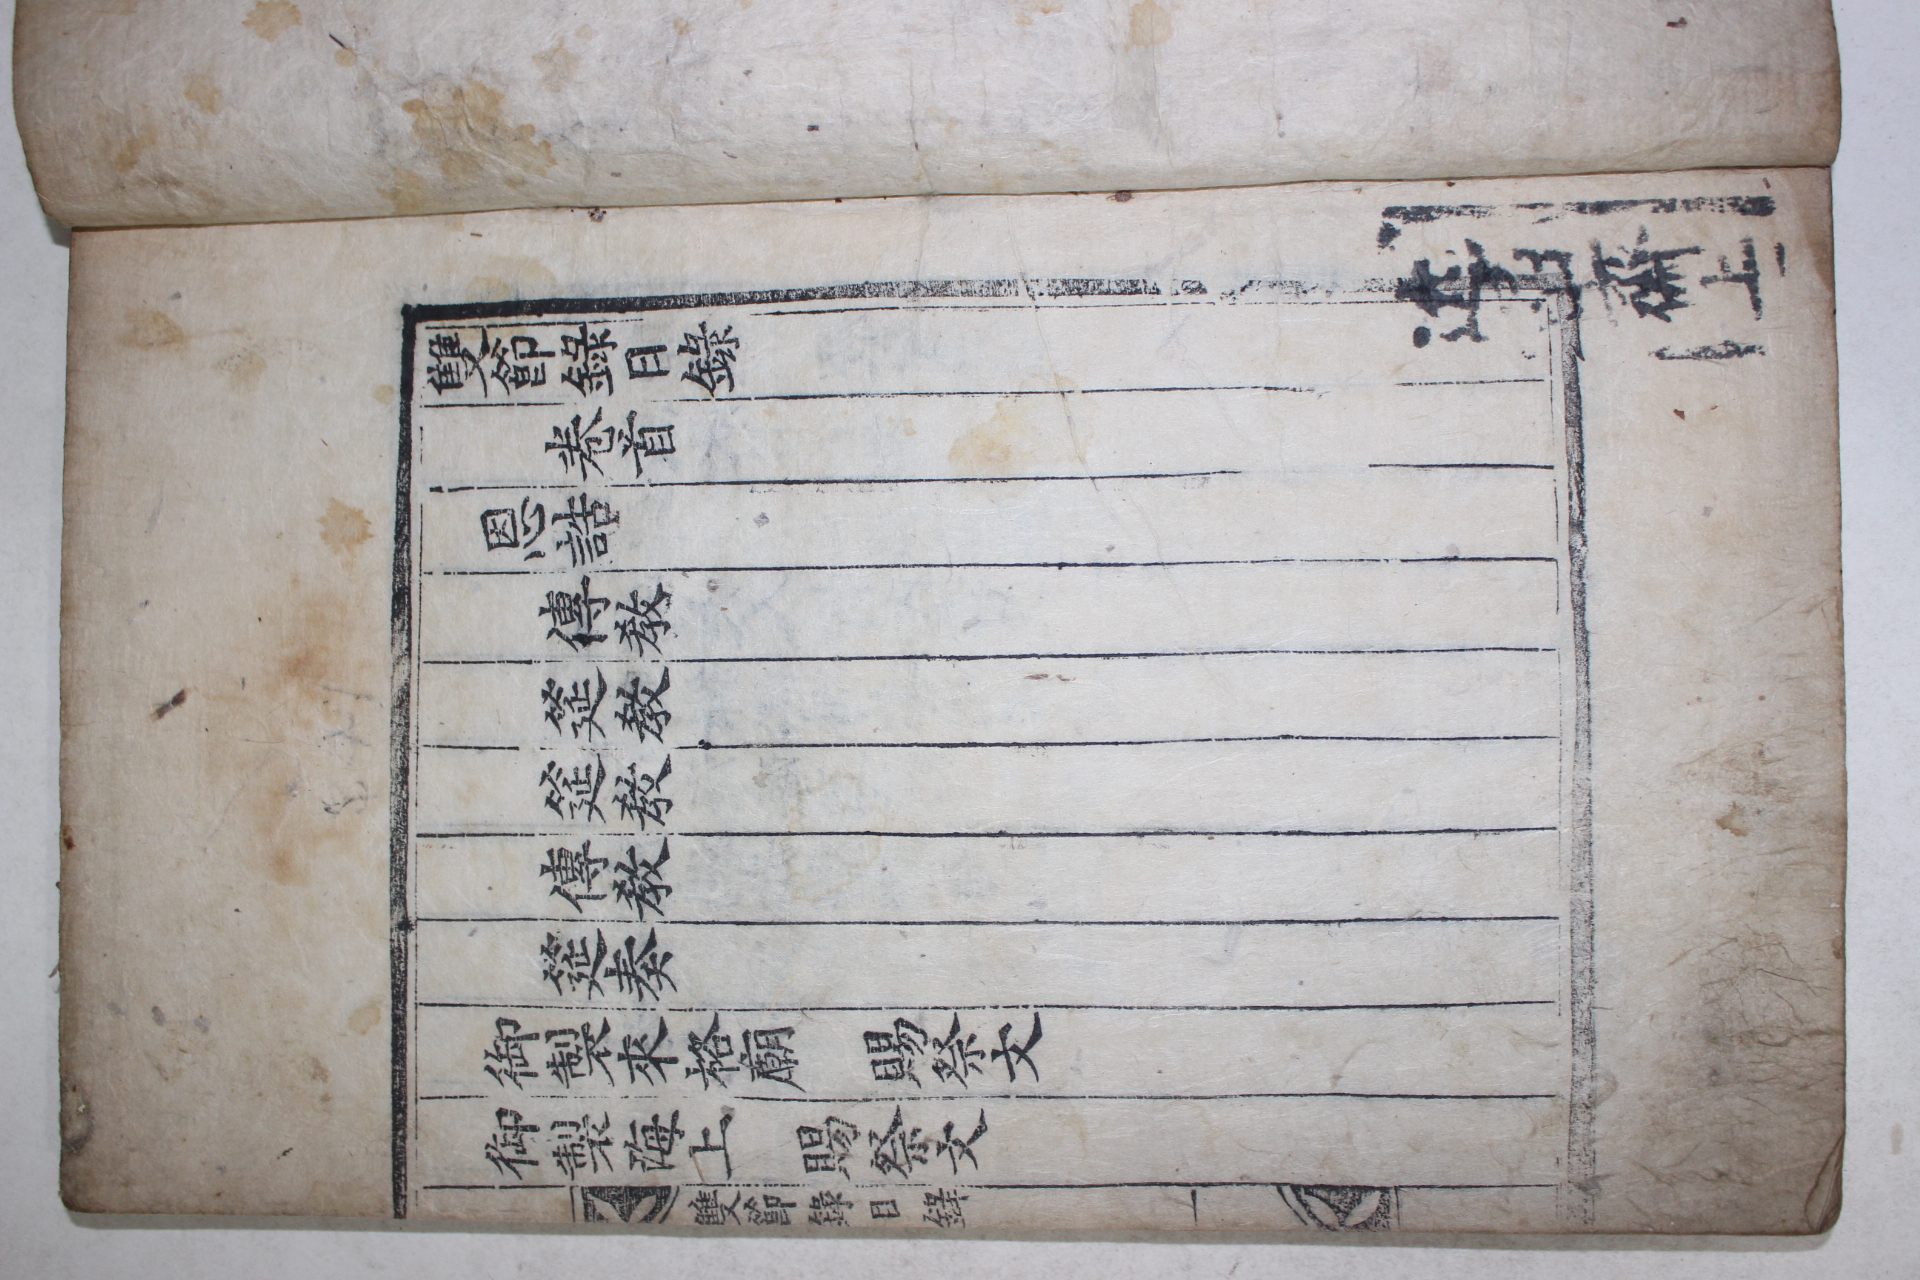 雙節錄目錄
卷首
恩誥
傳敎
筵敎
筵敎
傳敎
筵奏
御製來格廟　賜祭文
御製海上　賜祭文
雙節錄目錄　一
山齋上